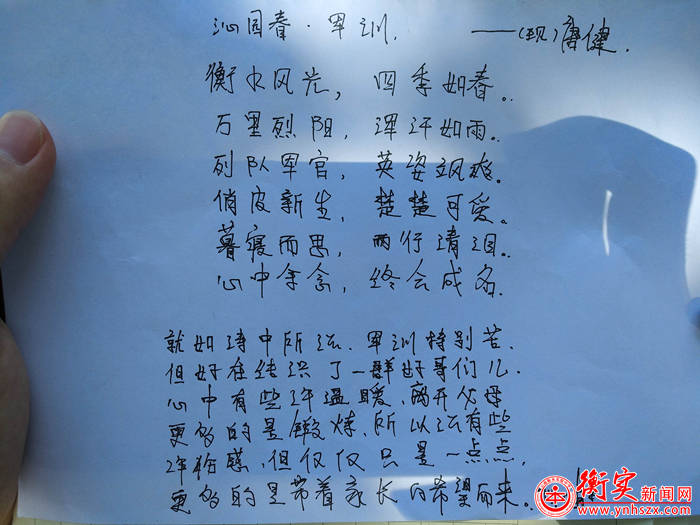 沁园春·军训.
——(现)唐健.
衡水风光，四季如春。
万里烈阳，浑汗如雨。
列队军官，英姿飒雄。
俏皮新生，楚楚可爱。
暮寝而思，两行清泪。
心中余念，终会成名.
就如诗中所说.军训特别苦.
但好在结识了一群好哥们儿
心中有些许温暖、离开父母
更多的是锻炼.所以说有些
伤感,但仅仅只是一点点,
更多的是带着家长的希望而来。
衡实新闻网
www.ynhszx.com